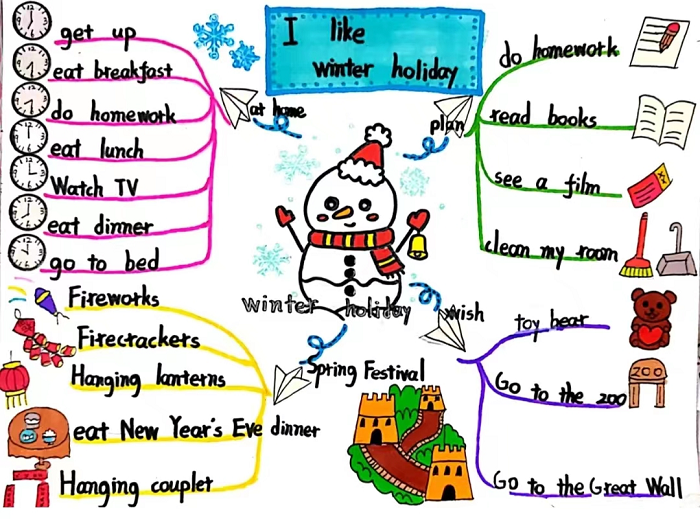 I like
winter holiday
at home
get up
eat breakfast
do homework
eat lunch
Watch TV
eat dinner
go to bed
plan
do homework
read books
see a film
clean my room
winter holiday
Spring Festival
Fireworks
Firecrackers
Hanging lanterns
eat New Year's Eve dinner
Hanging couplet
wish
toy bear
Go to the zoo
ZOO
Go to the Great Wall